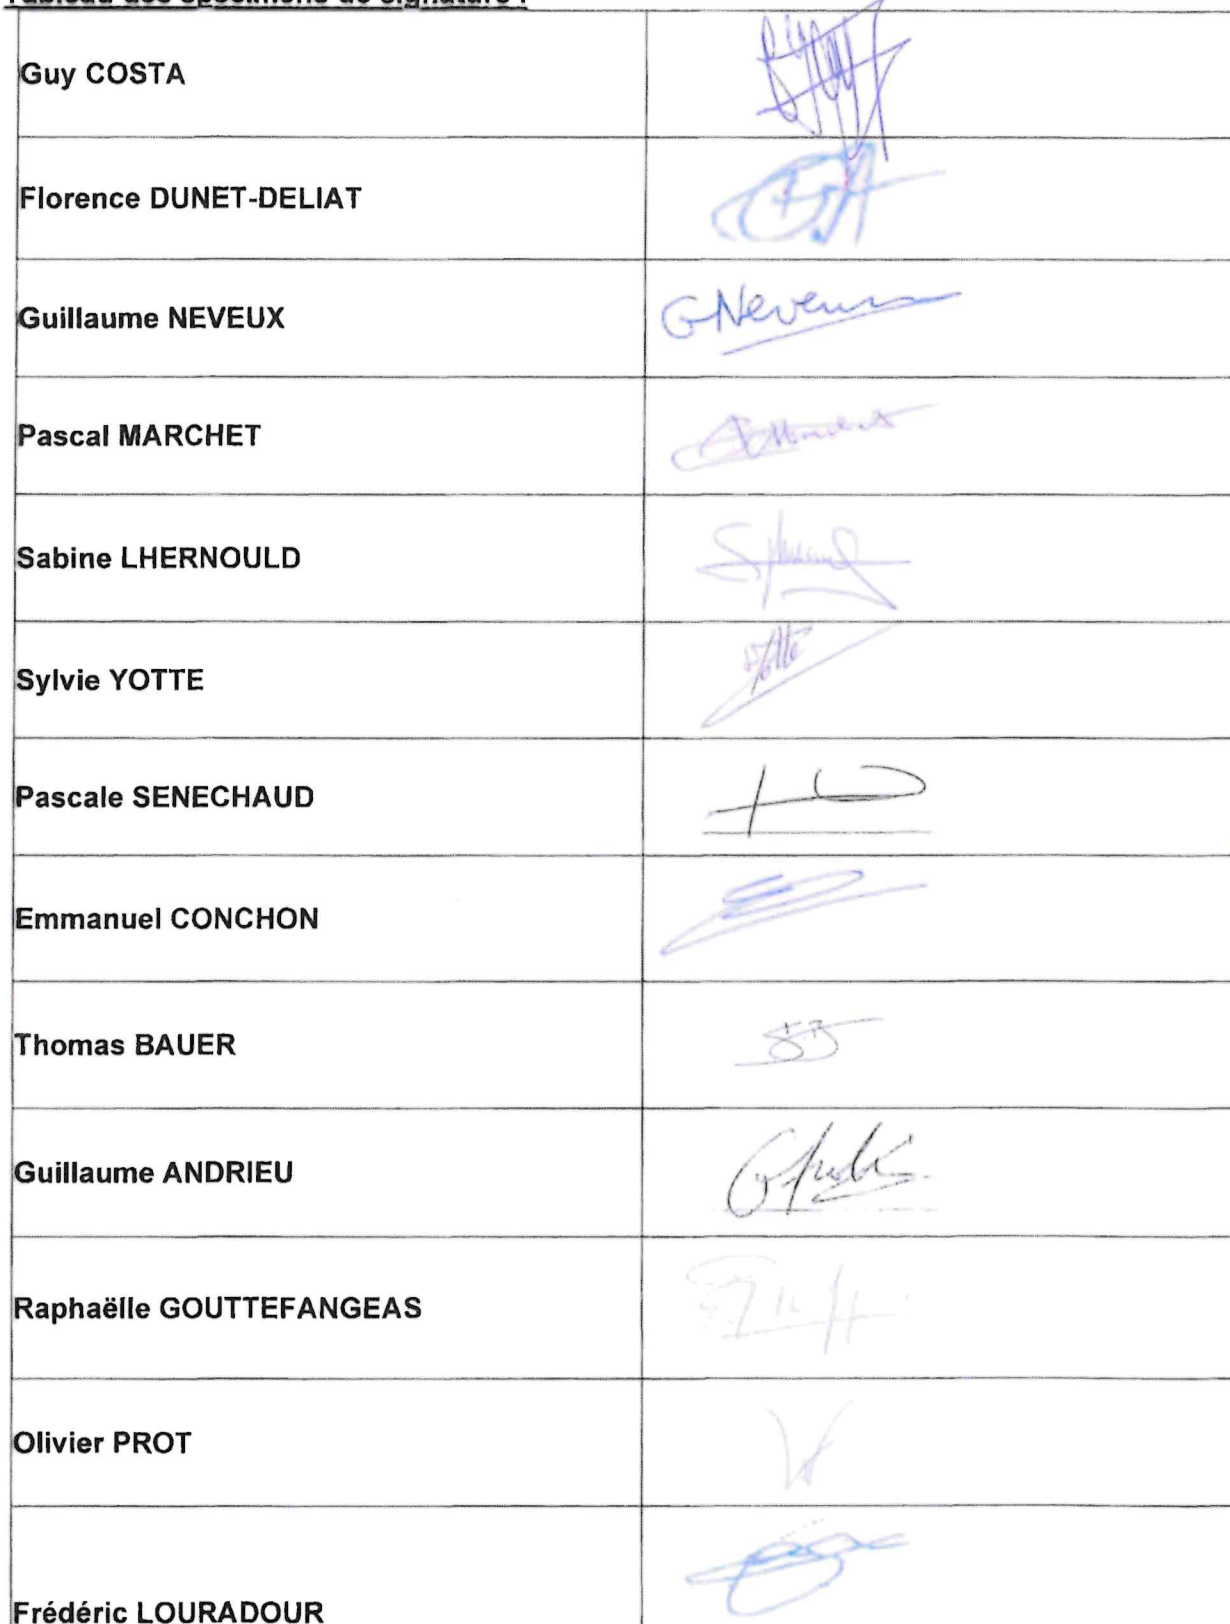 Tableau des spécimens de signature :
Guy COSTA
Florence DUNET-DELIAT
Guillaume NEVEUX
GNeveux
Pascal MARCHET
Sabine LHERNOULD
Sylvie YOTTE
Pascale SENECHAUD
Emmanuel CONCHON
Thomas BAUER
Guillaume ANDRIEU
Raphaëlle GOUTTEFANGEAS
Olivier PROT
Frédéric LOURADOUR